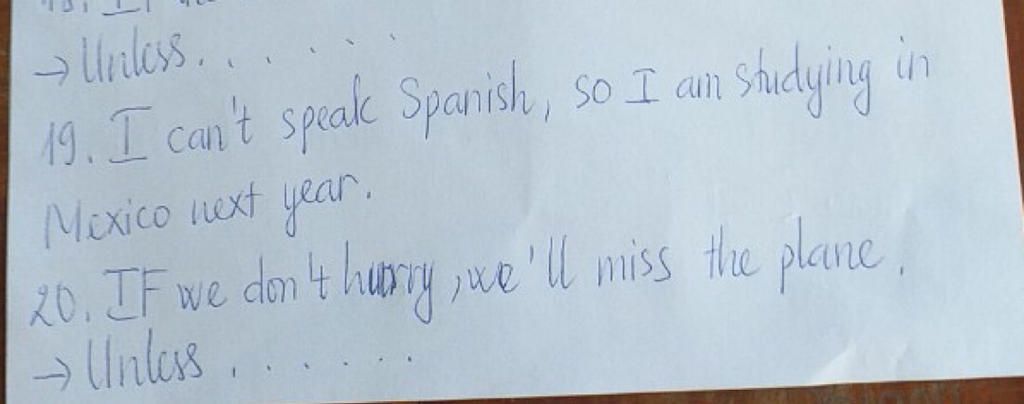 → Unless. . . . . . .
19. I can't speak Spanish, so I am studying in
Mexico next year.
20. IF we don't hurry, we'll miss the plane.
→ Unless . . . . . .